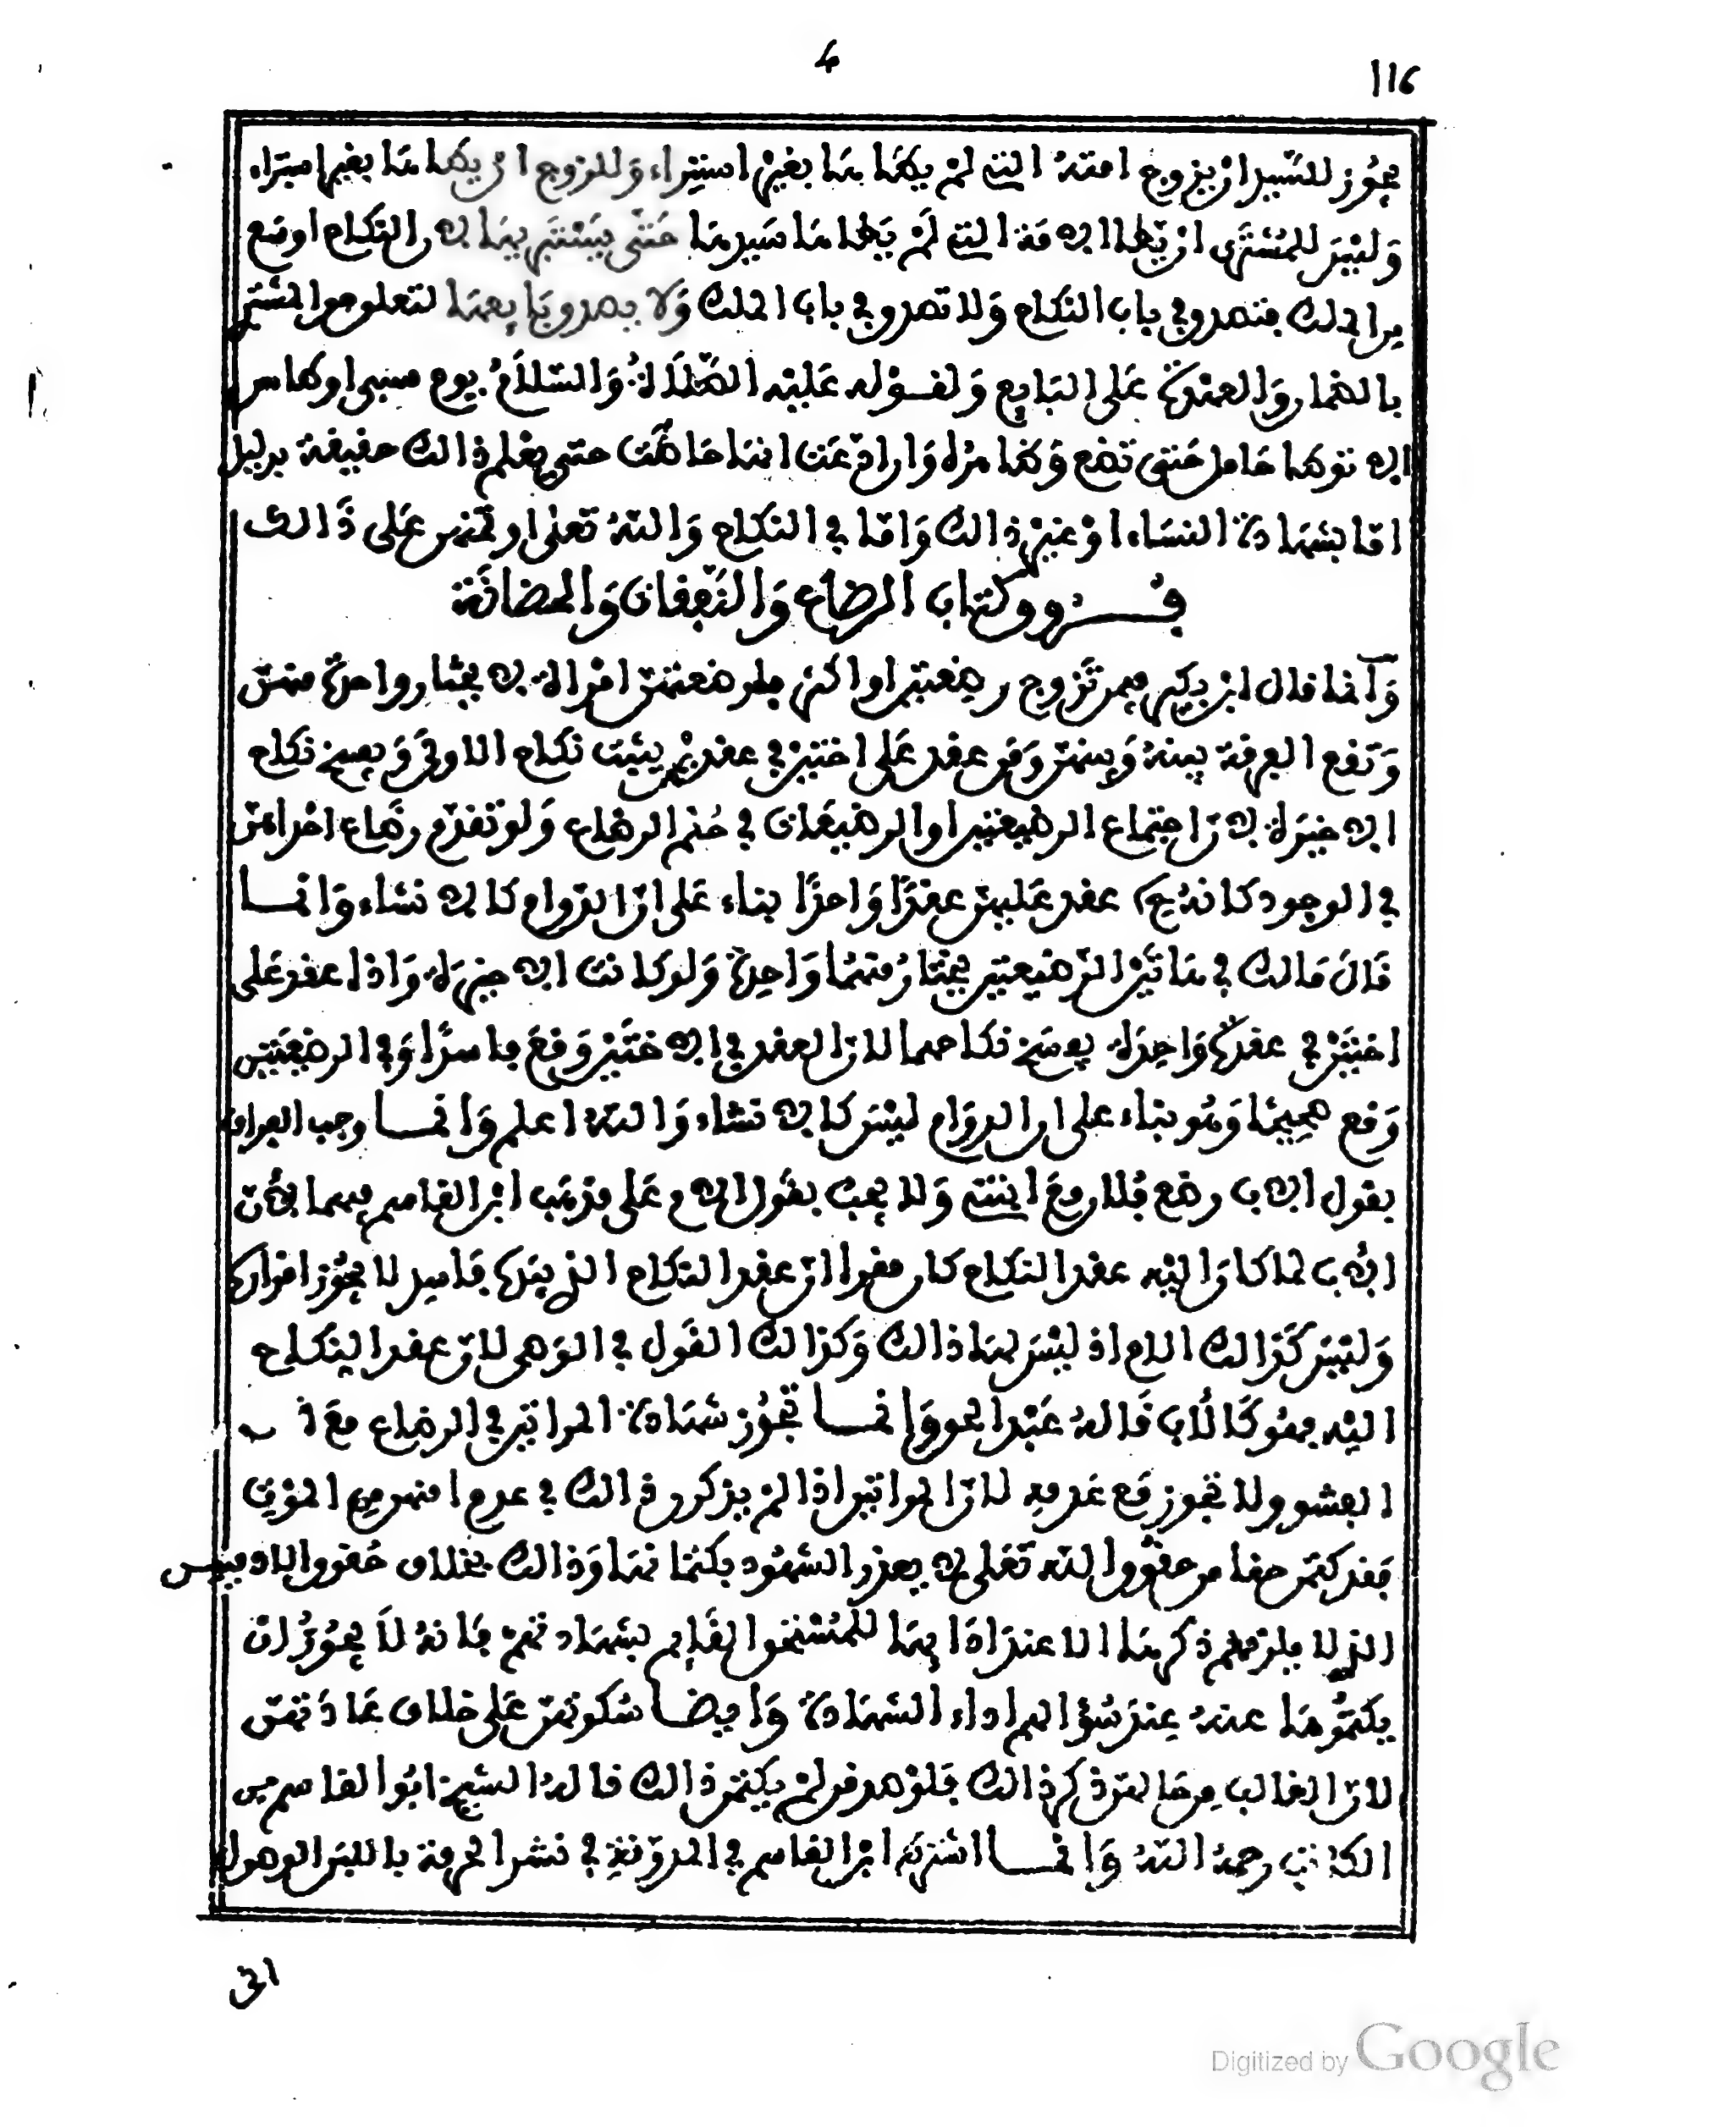 4
116
يجوز للسيد ان يزوج امته التى لم يطاها بغير استبراء وللزوج ان يطاها بغير استبراء
وليس للمشترى ان يطا الامة التى لم يطاها سيدها حتى يستبريها لان النكاح اوسع
من الملك فتصدق فى باب النكاح ولا تصدق فى باب الملك ولا يصدق بايعها لتعلق حق المشترى
بالضمان والعهدة على البايع ولقوله عليه الصلاة والسلام يوم سبى اوطاس
الا توطا حامل حتى تضع وكما من له وارادعت انها حاضت حتى يعلم ذالك حقيقة بدليل
اما بشهادة النساء او غير ذالك واما فى النكاح والله تعلى اوتمنهن على ذالك
فروق كتاب الرضاع والنفقات والحضانة
وانما قال ابن بكير فيمن تزوج رضيعتين او اكثر فارضعتهن امراة لا يختار واحدة منهن
وتقع الفرقة بينه وبينهن ومن عقد على اختين فى عقدين يثبت نكاح الاولى ويفسخ نكاح
الاخيرة لان اجتماع الرضيعتين او الرضيعات فى حكم الرضاع ولو تقدم رضاع احداهن
فى الوجود كانه عقد عليهن عقدا واحدا بناء على ان الدوام كالانشاء وانما
قال مالك فى هاتين الرضيعتين يختار منهما واحدة ولو كانت الاخيرة واذا عقد على
اختين فى عقدة واحدة يفسخ نكاحهما لان العقد فى الاختين وقع فاسدا وفى الرضيعتين
وقع صحيحا وهو بناء على ان الدوام ليس كالانشاء والله اعلم وانما وجب الفراق
بقول الاب رضع فلان مع ابنتى ولا يجب بقول الام على مذهب ابن القاسم فيهما لان
الاب لما كان اليه عقد النكاح كان مقرا ان عقد النكاح الذى بيده فاسد لا يجوز اقراره
وليس كذالك الام اذ ليس لها ذالك وكذالك القول فى الوصى لان عقد النكاح
اليه فهو كالاب قاله عبد الحق وانما تجوز شهادة المراتين فى الرضاع مع
الفشو ولا تجوز مع عدمه لان المراتين اذا لم يذكرن ذالك فى عدم
فقد كتمن حقا من حقوق الله تعلى لا يعذر الشهود بكتمانها وذالك بخلاف حقوق الادميين
الذى لا يلزمهم ذكرها الا عند اداها للمستحق القايم بشهادتهم فانه لا يجوز ان
يكتموها عنه عند سؤالهم اداء الشهادة وايضا سكوتهن على خلاف عادتهن
لان الغالب من حالهن ذكر ذالك فلو صدقن لم يكتمن ذالك قاله الشيخ ابو القاسم بن
الكاتب رحمه الله وانما اشترط ابن القاسم فى المدونة فى نشر الحرمة باللبن الوصول
الى
Digitized by Google